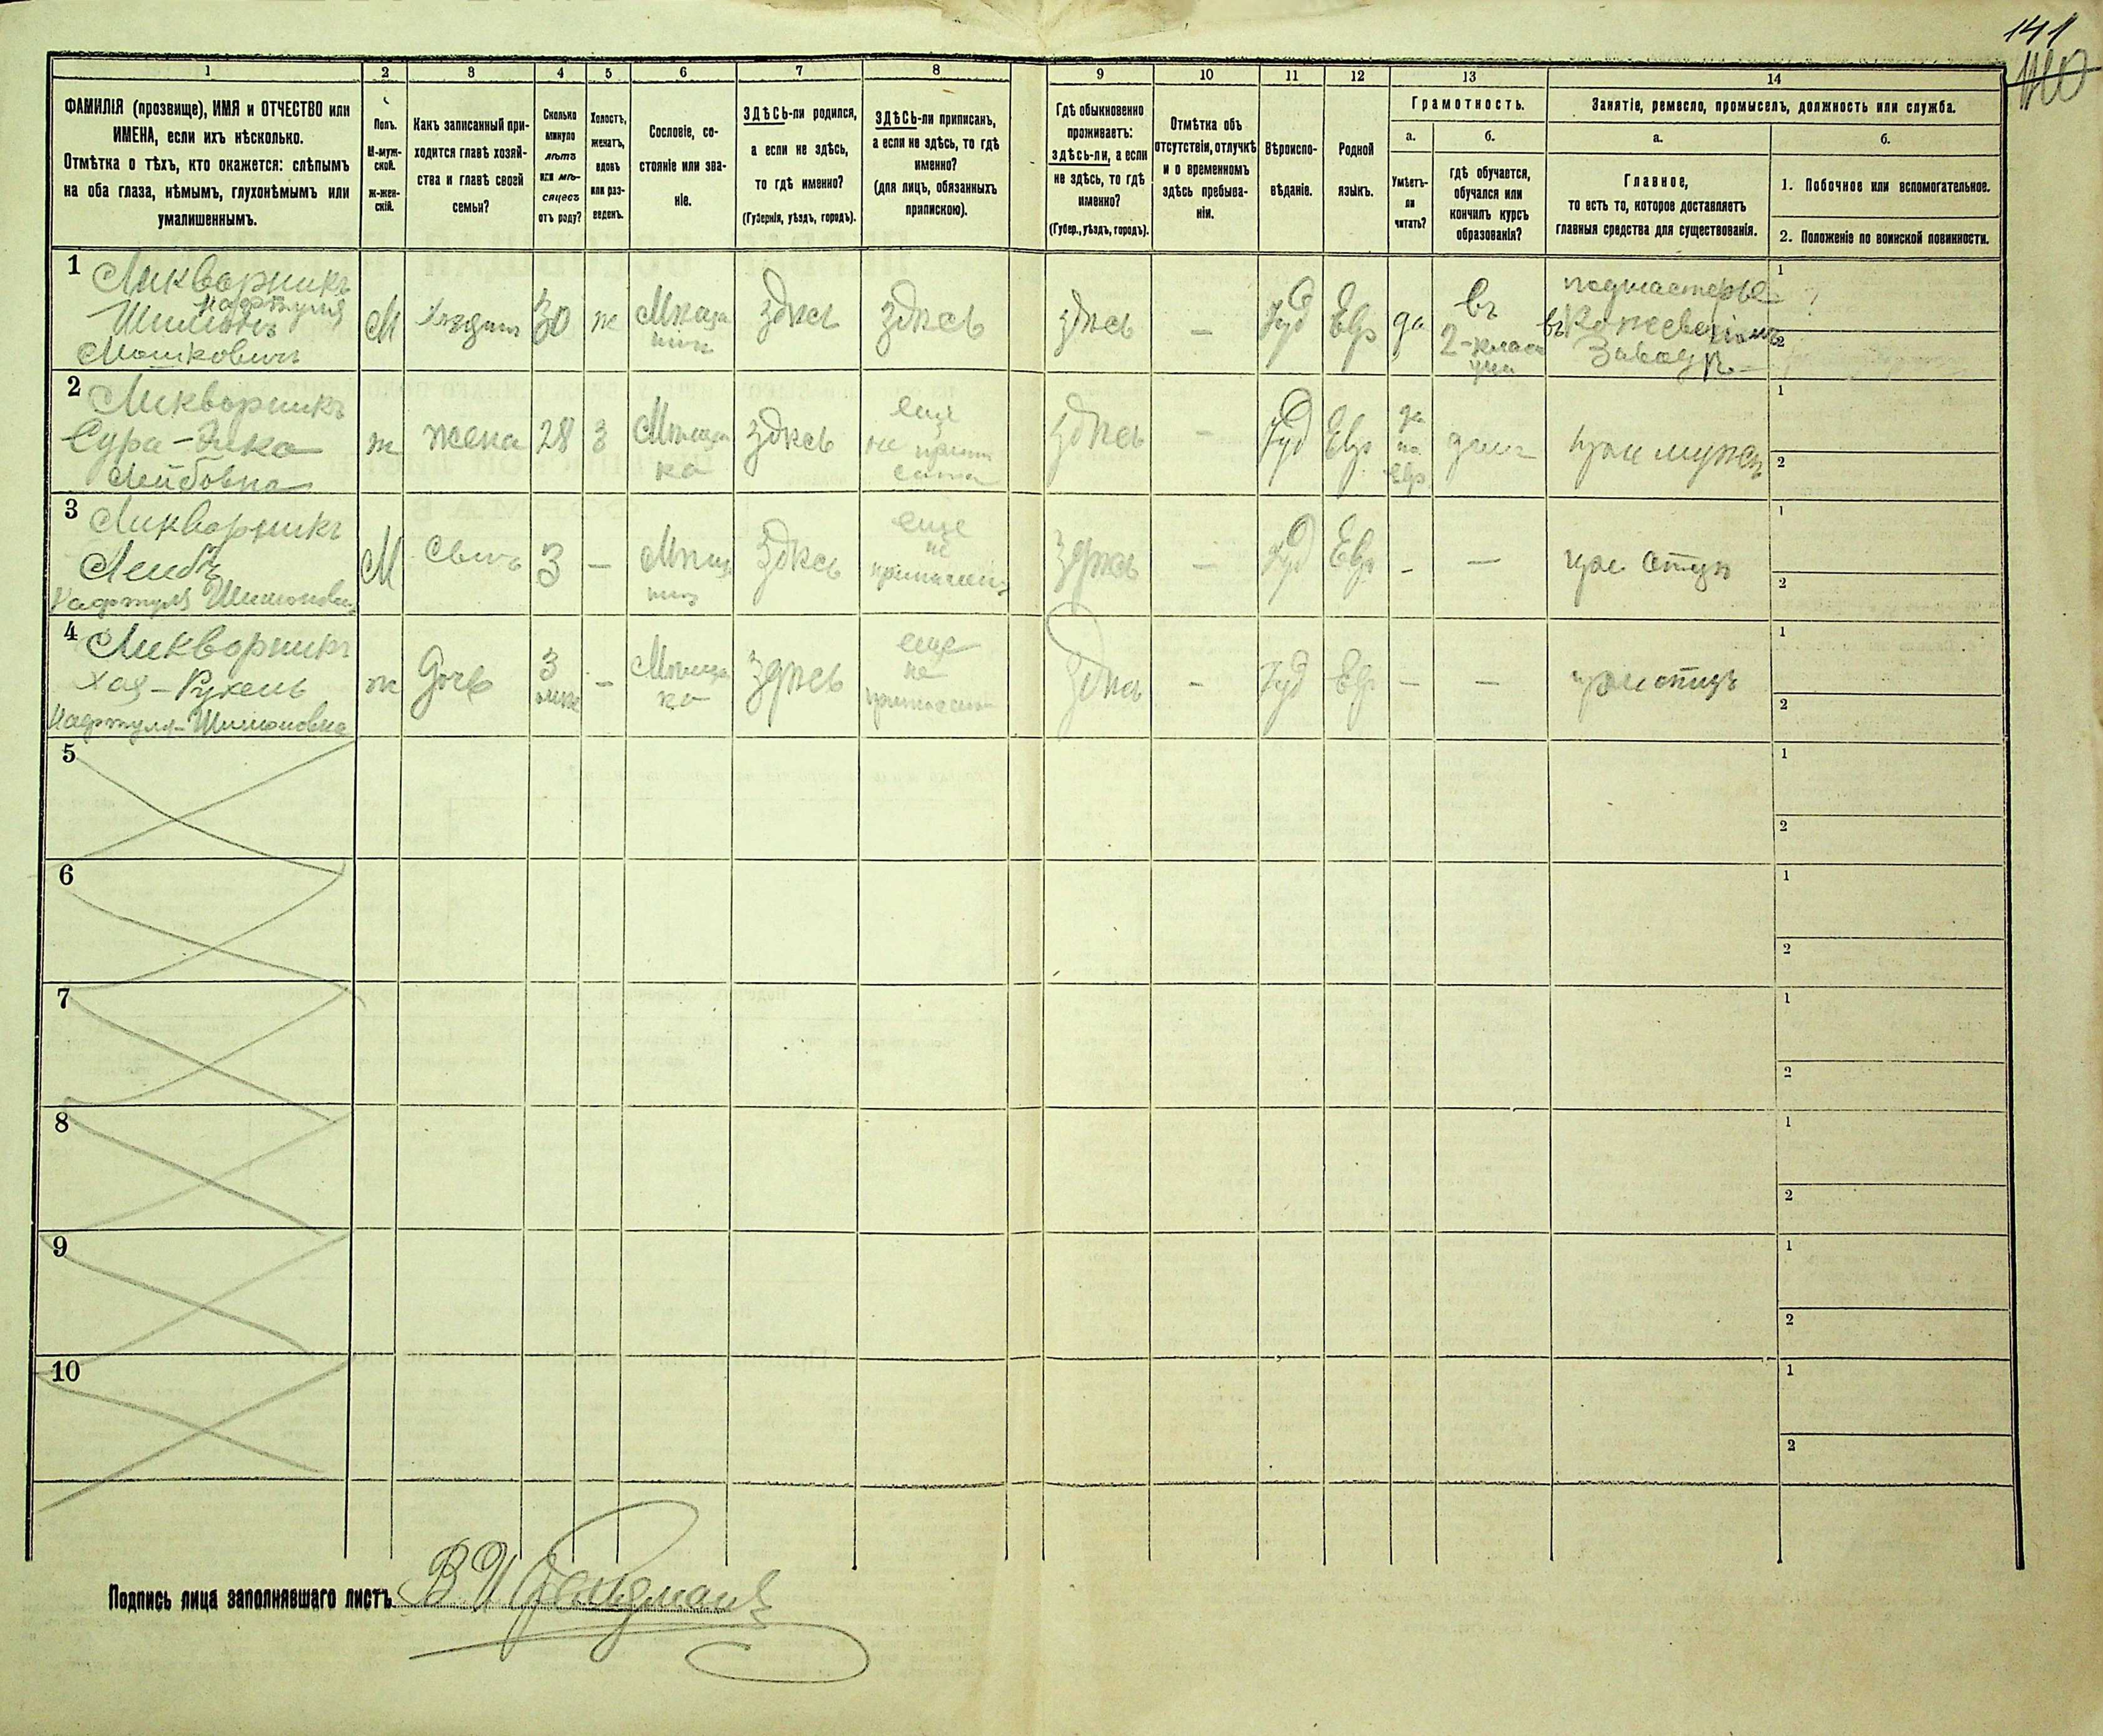 141
140
1
2
3
4
5
6
7
8
9
10
11
12
13
14
ФАМИЛІЯ (прозвище), ИМЯ и ОТЧЕСТВО или
ИМЕНА, если ихъ нѣсколько.
Отмѣтка о тѣхъ, кто окажется: слѣпымъ
на оба глаза, нѣмымъ, глухонѣмымъ или
умалишеннымъ.
Полъ.
М-муж-
ской.
ж-жен-
скій.
Какъ записанный при-
ходится главѣ хозяй-
ства и главѣ своей
семьи?
Сколько
минуло
лѣтъ
или мѣ-
сяцевъ
отъ роду?
Холостъ,
женатъ,
вдовъ
или раз-
веденъ.
Сословіе, со-
стояніе или зва-
ніе.
ЗДѢСЬ-ли родился,
а если не здѣсь,
то гдѣ именно?
(Губернія, уѣздъ, городъ).
ЗДѢСЬ-ли приписанъ,
а если не здѣсь, то гдѣ
именно?
(для лицъ, обязанныхъ
припискою).
Гдѣ обыкновенно
проживаетъ:
здѣсь-ли, а если
не здѣсь, то гдѣ
именно?
(Губер., уѣздъ, городъ).
Отмѣтка объ
отсутствіи, отлучкѣ
и о временномъ
здѣсь пребыва-
ніи.
Вѣроиспо-
вѣданіе.
Родной
языкъ.
Грамотность.
а.
Умѣетъ-
ли
читать?
б.
гдѣ обучается,
обучался или
кончилъ курсъ
образованія?
Занятіе, ремесло, промыселъ, должность или служба.
а.
Главное,
то есть то, которое доставляетъ
главныя средства для существованія.
б.
1. Побочное или вспомогательное.
2. Положеніе по воинской повинности.
1
Ликворникъ
Нафтуля
Шимонъ
Мошковичъ
М
Хозяинъ
30
ж
Мѣща
нин
здѣсь
здѣсь
здѣсь
–
Іуд
Евр
да
въ
2-клас
учи
подмастерье
въ Кожевенномъ
Заводѣ
1
2
2
Ликворникъ
Сура-Эйка
Лейбовна
ж
жена
28
З
Мѣщан
ка
здѣсь
еще
не припи
сана
здѣсь
–
Іуд
Евр
да
по
Евр
дома
при мужѣ
1
2
3
Ликворникъ
Лейбъ
Нафтуля Шимонови
М
Сынъ
3
–
Мѣща
нин
здѣсь
еще
не
приписанъ
здѣсь
–
Іуд
Евр
–
–
при отцѣ
1
2
4
Ликворникъ
Хая-Рухель
Нафтуля-Шимоновна
ж
дочь
3
мѣс
–
Мѣща
ка
здѣсь
еще
не
приписана
здѣсь
–
Іуд
Евр
–
–
при отцѣ
1
2
5
1
2
6
1
2
7
1
2
8
1
2
9
1
2
10
1
2
Подпись лица заполнявшаго листъ